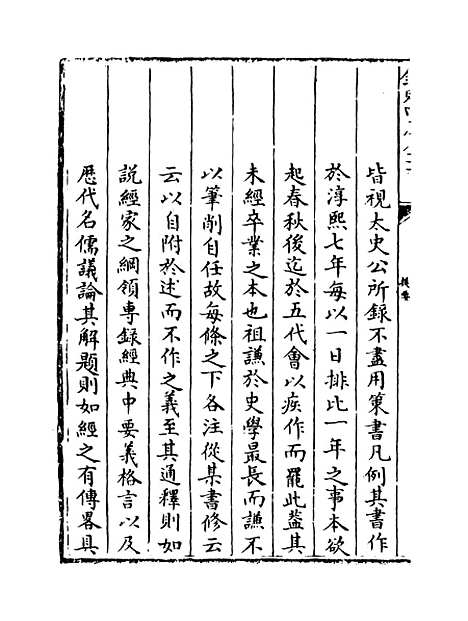 皆視太史公所録不盡用䇿書凡例其書作
於淳熙七年每以一日排比一年之事本欲
起春秋後迄於五代會以疾作而罷此葢其
未經卒業之本也祖謙於史學最長而謙不
以筆削自任故每條之下各注從某書修云
云以自附於述而不作之義至其通釋則如
說經家之綱領專録經典中要義格言以及
歴代名儒議論其解題則如經之有傳畧具